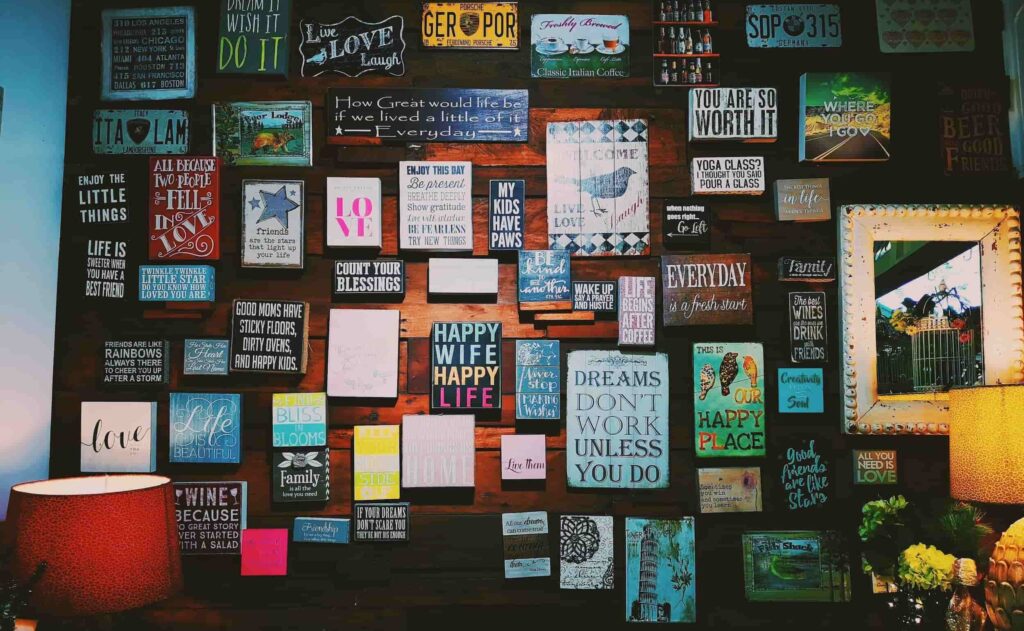 310 LOS ANGELES
CHICAGO
212 NEW YORK
404 ATLANTA
HOUSTON 713
415 SAN FRANCISCO
DALLAS BOSTON
DREAM IT
WISH IT
DO IT
Live
LOVE
Laugh
PORSCHE
GER POR
FERDINAND PORSCHE
Freshly Brewed
Classic Italian Coffee
SDP 315
GERMANY
ITALY
ITA LAM
LAMBORGHINI
How Great would life be
if we lived a little of it
Everyday
YOU ARE SO
WORTH IT
WHERE
YOU GO
I GO
GOOD
BEER
GOOD
FRIENDS
ENJOY THE
LITTLE
THINGS
ALL BECAUSE
TWO PEOPLE
FELL
IN
LOVE
friends
are the stars
that light up
your life
LOVE
ENJOY THIS DAY
Be present
BREATHE DEEPLY
Show gratitude
BE FEARLESS
TRY NEW THINGS
MY
KIDS
HAVE
PAWS
WELCOME
LIVE
LOVE
Laugh
YOGA CLASS?
I THOUGHT YOU SAID
POUR A CLASS
when nothing
goes right..
Go Left
THE BEST THINGS
IN LIFE
LIFE IS
SWEETER WHEN
YOU HAVE A
BEST FRIEND
TWINKLE TWINKLE
LITTLE STAR
DO YOU KNOW HOW
LOVED YOU ARE
COUNT YOUR
BLESSINGS
BE
kind
one
another
WAKE UP
SAY A PRAYER
AND HUSTLE
LIFE
BEGINS
AFTER
COFFEE
EVERYDAY
is a fresh start
Family
The best
WINES
are the ones
we
DRINK
with
FRIENDS
FRIENDS ARE LIKE
RAINBOWS
ALWAYS THERE
TO CHEER YOU UP
AFTER A STORM
GOOD MOMS HAVE
STICKY FLOORS,
DIRTY OVENS,
AND HAPPY KIDS.
HAPPY
WIFE
HAPPY
LIFE
Never
stop
MAKING
Wishes
DREAMS
DON'T
WORK
UNLESS
YOU DO
THIS IS
OUR
HAPPY
PLACE
Creativity
Soul
love
Life
IS
BEAUTIFUL
BLISS
IN
BLOOMS
Family
is all the love
you need
HOME
Live them
Sometimes
you win
and sometimes
you learn
Good
friends
are like
stars
ALL YOU
NEED IS
LOVE
WINE
BECAUSE
NO GREAT STORY
EVER STARTED
WITH A SALAD
Friendship
IF YOUR DREAMS
DON'T SCARE YOU
THEY'RE NOT BIG ENOUGH
All our dreams
can come true
Fish Shack